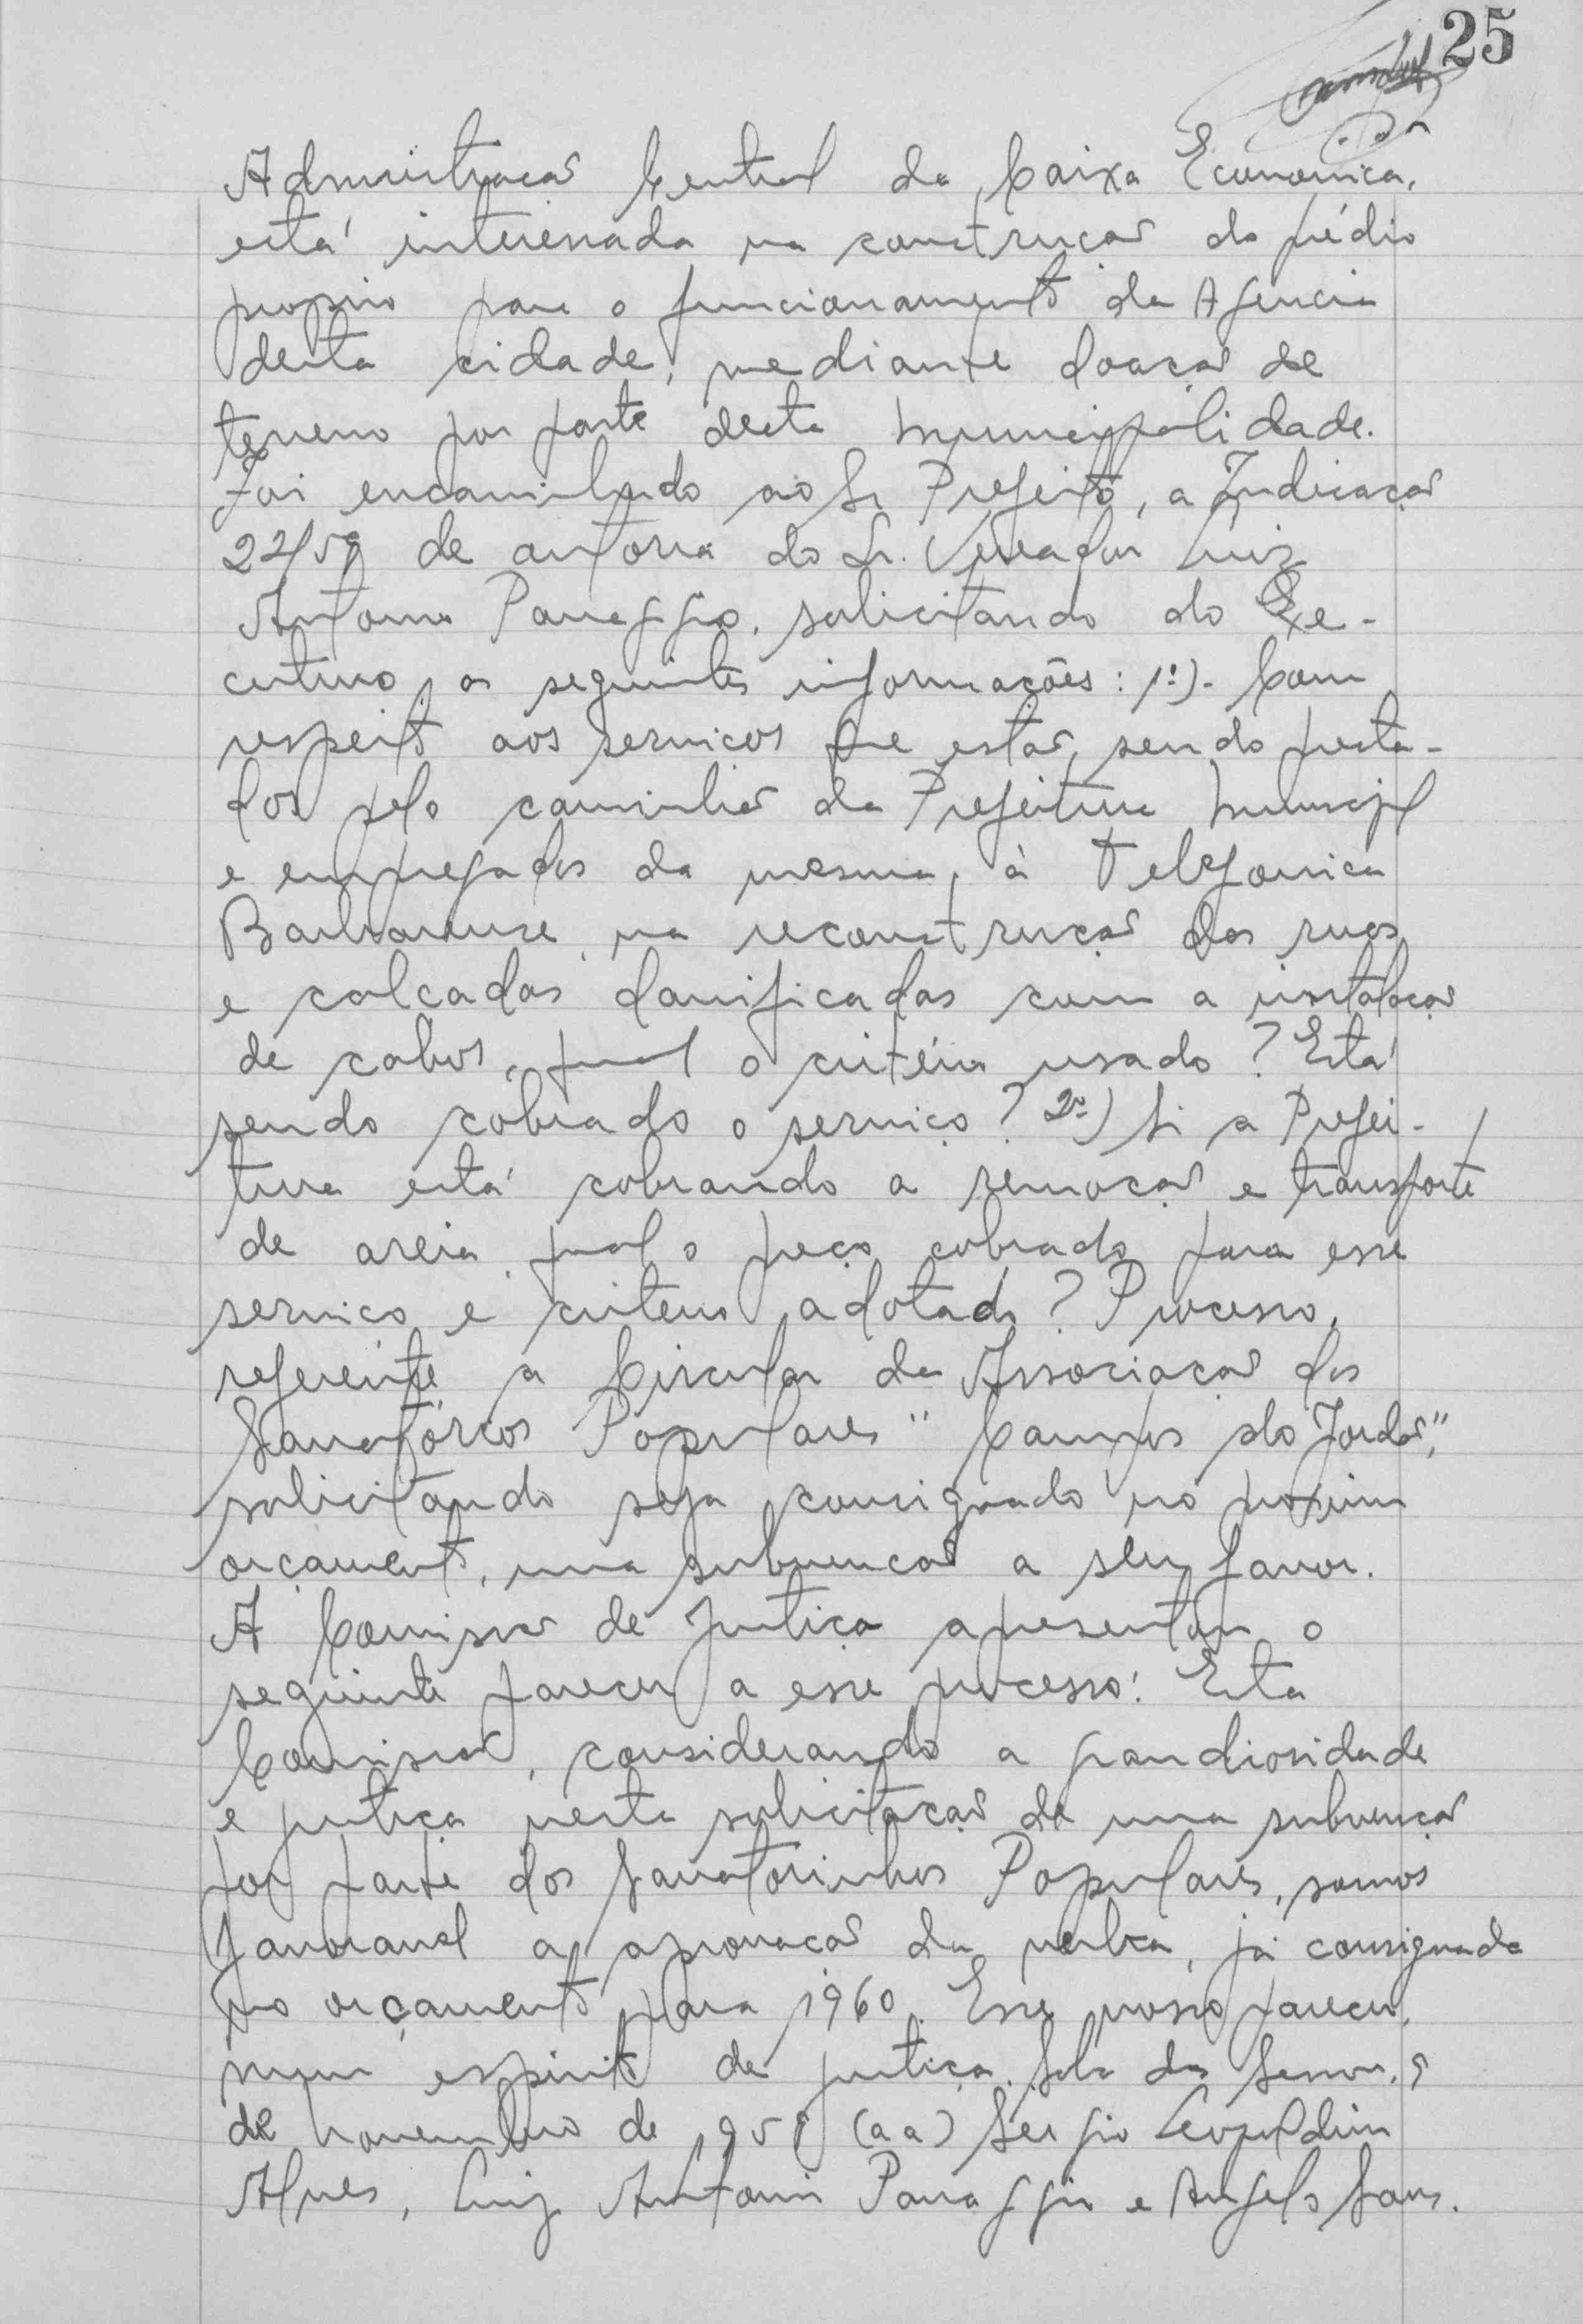 25
Administração Central da Caixa Economica,
está interessada na construção do prédio
proprio para o funcionamento da Agencia
desta cidade, mediante doação de
terreno por parte desta municipalidade.
Foi encaminhado ao Sr Prefeito, a Indicação
22/59 de autoria do Sr. Vereador Luiz
Antonio Panaggio, solicitando do Exe-
cutivo, as seguintes informações: 1º)- Com
respeito aos serviços que estão, sendo presta-
dos pelo caminhão da Prefeitura Municipal
e empregados da mesma, à Telefonica
Barbarense, na reconstrução das ruas
e calçadas danificadas com a instalação
de cabos, qual o critério usado? Está
sendo cobrado o serviço? 2º) Si a Prefei-
tura está cobrando a remoção e transporte
de areia, qual o preço cobrado para esse
serviço e criterio adotado? Processo,
referente a Circular da Associação dos
Sanatórios Populares "Campos do Jordão",
solicitando seja consignado no proximo
orçamento, uma subvenção a seu favor.
A Comissão de Justiça apresentou o
seguinte parecer a esse processo: Esta
Comissão, considerando a grandiosidade
e justiça nesta solicitação de uma subvenção
por parte dos Sanatorinhos Populares, somos
favoravel a aprovação da verba, já consignada
no orçamento para 1960. Esse nosso parecer,
num espirito de justiça. Sala das Sessões, 9
de novembro de 1959 (aa) Sergio Leopoldino
Alves, Luiz Antonio Panaggio e Angelo Sans.